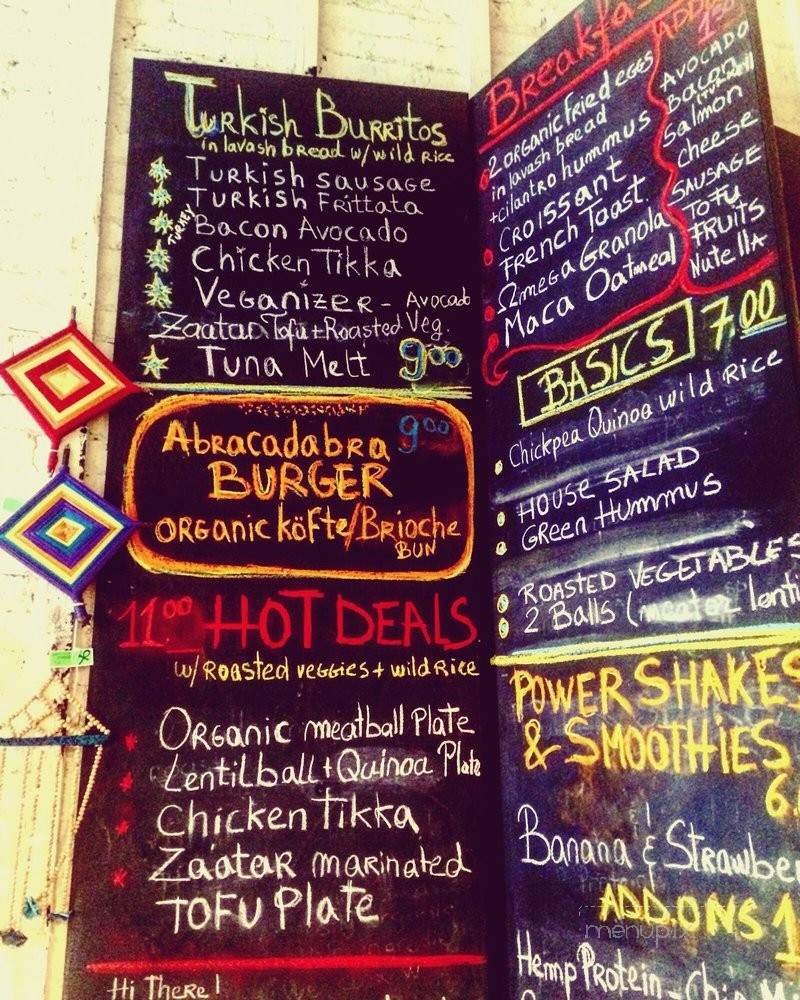 Turkish Burritos
in lavash bread w/ wild rice
Turkish sausage
Turkish Frittata
TURKEY
Bacon Avocado
Chicken Tikka
Veganizer - Avocado
Zaatar Tofu + Roasted Veg.
Tuna Melt 9.00
Abracadabra 9.00
BURGER
ORGANIC köfte/Brioche
BUN
11.00 HOT DEALS
w/ Roasted veggies + wild Rice
ORGANIC meatball Plate
Lentilball + Quinoa Plate
Chicken Tikka
Zaatar marinated
TOFU Plate
Hi There!
Breakfas
ADD
1.50
2 ORGANIC fried eggs
in lavash bread
+ cilantro hummus
CROISSANT
FRENCH Toast.
Ωmega Granola
Maca Oatmeal
AVOCADO
Bacon
(TURKEY)
Salmon
cheese
SAUSAGE
TOFU
FRUITS
Nutella
7.00
BASICS
Chickpea Quinoa wild Rice
HOUSE SALAD
GReen Hummus
ROASTED VEGETABLES
2 Balls (meat or lenti
POWER SHAKES
& SMOOTHIES
6.
Banana & Strawber
ADD.ONS 1
Hemp Protein - Chia M
menupix